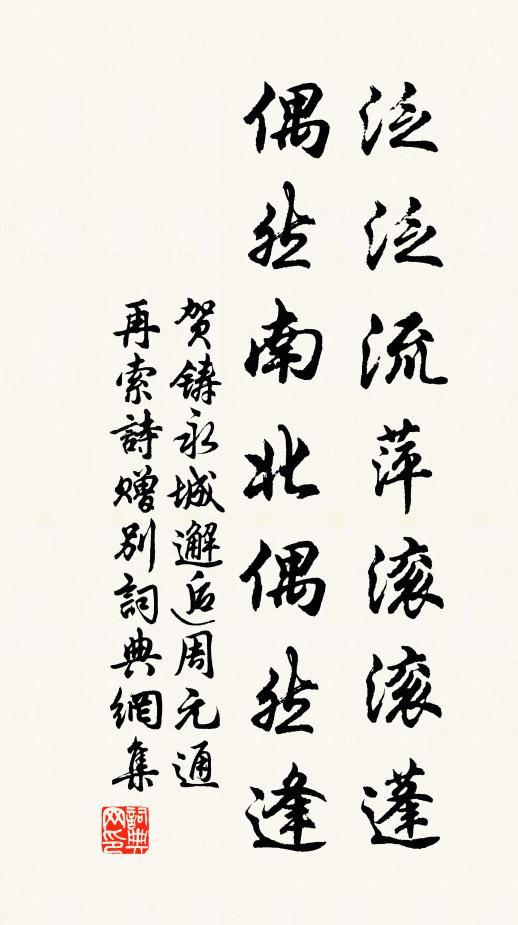 泛泛流萍滚滚蓬
偶然南北偶然逢
贺铸永城邂逅周元通
再索詩赠别詞典網集
詞典網印